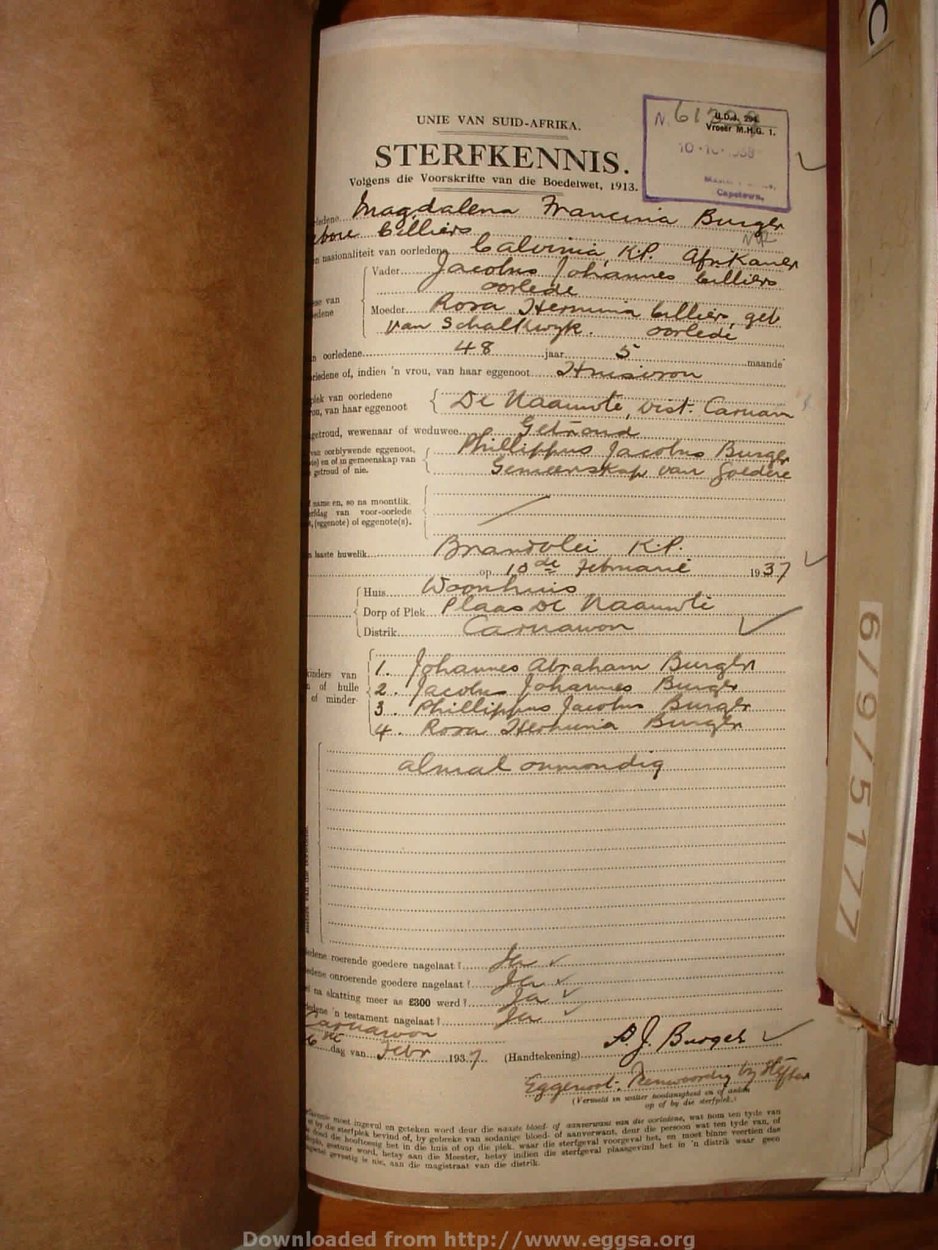 UNIE VAN SUID-AFRIKA.
STERFKENNIS.
Volgens die Voorskrifte van die Boedelwet, 1913.
U.D.J. 294.
Vroeër M.H.G. 1.
Capetown,
Magdalena Francina Burger
Cilliers
nasionaliteit van oorledene Calvinia, K.P. Afrikaner
Vader Jacobus Johannes Cilliers
oorlede
Moeder Rosa Hermina Cilliers, geb.
van Schalkwyk. oorlede
oorledene 48 jaar 5 maande
of, indien 'n vrou, van haar eggenoot Huisvrou
van oorledene
van haar eggenoot De Naauwte, Dist. Carnarvon
getroud, wewenaar of weduwee Getroud
oorblywende eggenoot, Phillippus Jacobus Burger
en of in gemeenskap van
getroud of nie. Gemeenskap van Goedere
name en, so na moontlik
van voor-oorlede
(eggenote) of eggenote(s).
laaste huwelik Brandvlei K.P.
op 10de Februarie 1937
Huis Woonhuis
Dorp of Plek Plaas De Naauwte
Distrik Carnarvon
van
of hulle
of minder
1. Johannes Abraham Burger
2. Jacobus Johannes Burger
3. Phillippus Jacobus Burger
4. Rosa Hermina Burger
almal onmondig
roerende goedere nagelaat? Ja
onroerende goedere nagelaat? Ja
na skatting meer as £300 werd? Ja
'n testament nagelaat? Ja
Carnarvon
dag van Febr 1937. (Handtekening) P. J. Burger
Eggenoot. Teenwoordig by sterfte
(Vermeld in watter hoedanigheid en of
op of by die sterfplek.)
moet ingevul en geteken word deur die naaste bloed- of aanverwant van die oorledene, wat nom ten tyde van
by die sterfplek bevind of, by gebreke van sodanige bloed- of aanverwant, deur die persoon wat ten tyde van, of
dood die hooftoesig het in die huis of op die plek, waar die sterfgeval voorgeval het, en moet binne veertien dae
gestuur word, hetsy aan die Meester, hetsy indien die sterfgeval plaasgevind het in 'n distrik waar geen
gevestig is nie, aan die magistraat van die distrik.
6/9/5177
C
Downloaded from http://www.eggsa.org